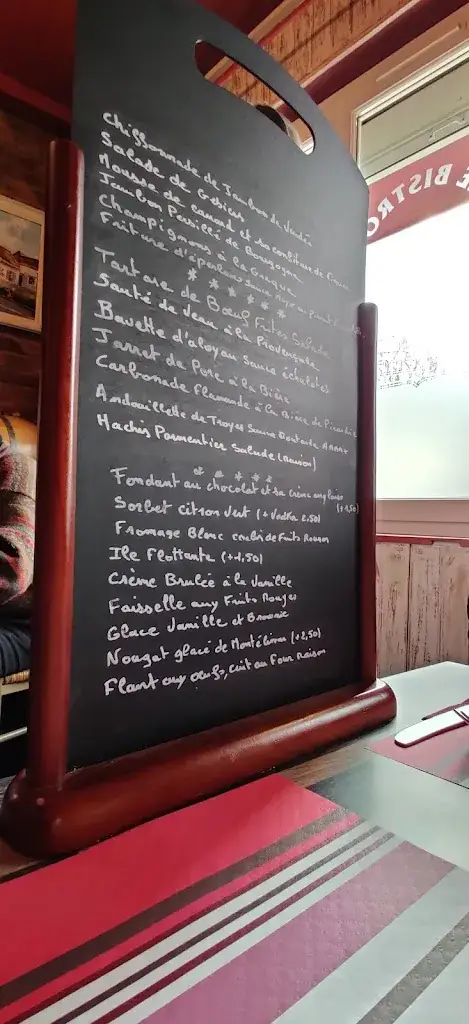 Chiffonnade de Jambon de Vendée
Salade de Gésiers
Mousse de canard et sa confiture de Figues
Jambon Persillé de Bourgogne
Champignons à la Grecque
Friture d'éperlans Sauce
* * * * *
Tartare de Bœuf Frites Salade
Sauté de Veau à la Provençale
Bavette d'aloyau Sauce échalotes
Jarret de Porc à la Bière
Carbonade Flamande à la Bière de Picardie
Andouillette de Troyes Sauce Moutarde AAAAA
Hachis Parmentier Salade (Maison)
* * * * *
Fondant au chocolat et sa Crème anglaise (+1,50)
Sorbet citron Vert (+ Vodka 2.50)
Fromage Blanc coulis de Fruits Rouges
Ile Flottante (+1,50)
Crème Brulée à la Vanille
Faisselle aux Fruits Rouges
Glace Vanille et Brownie
Nougat glacé de Montélimar (+2,50)
Flant aux œufs, Cuit au Four Maison
E BISTRO